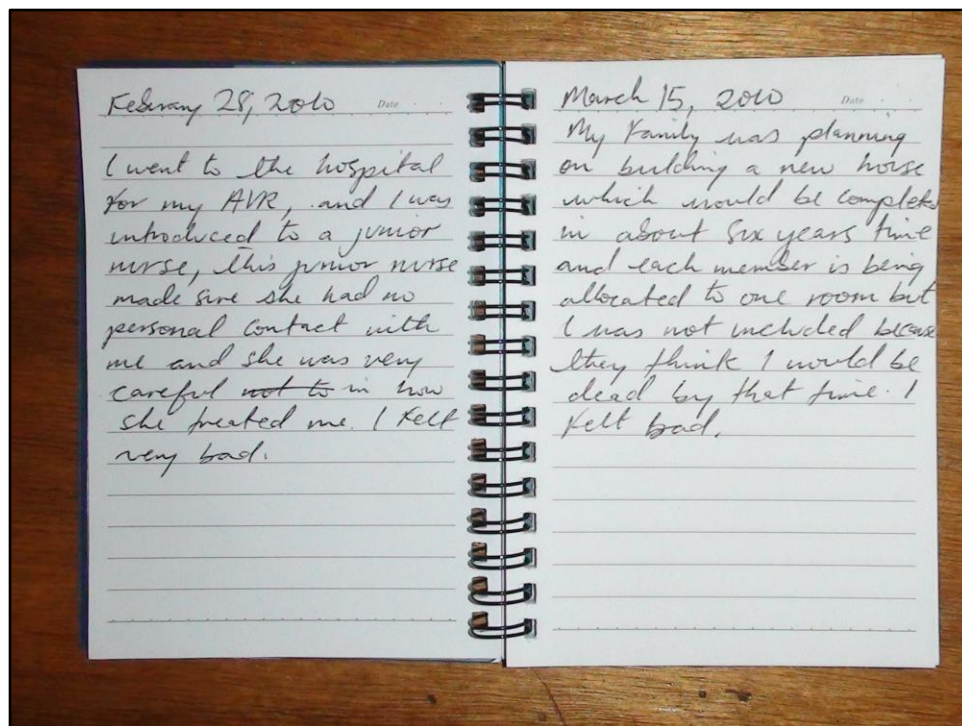 February 28, 2010 Date
I went to the hospital
for my AVR, and I was
introduced to a junior
nurse, this junior nurse
made sure she had no
personal contact with
me and she was very
careful not to in how
she treated me. I felt
very bad.
March 15, 2010 Date
My Family was planning
on building a new house
which would be completed
in about six years time
and each member is being
allocated to one room but
I was not included because
they think I would be
dead by that time. I
felt bad.